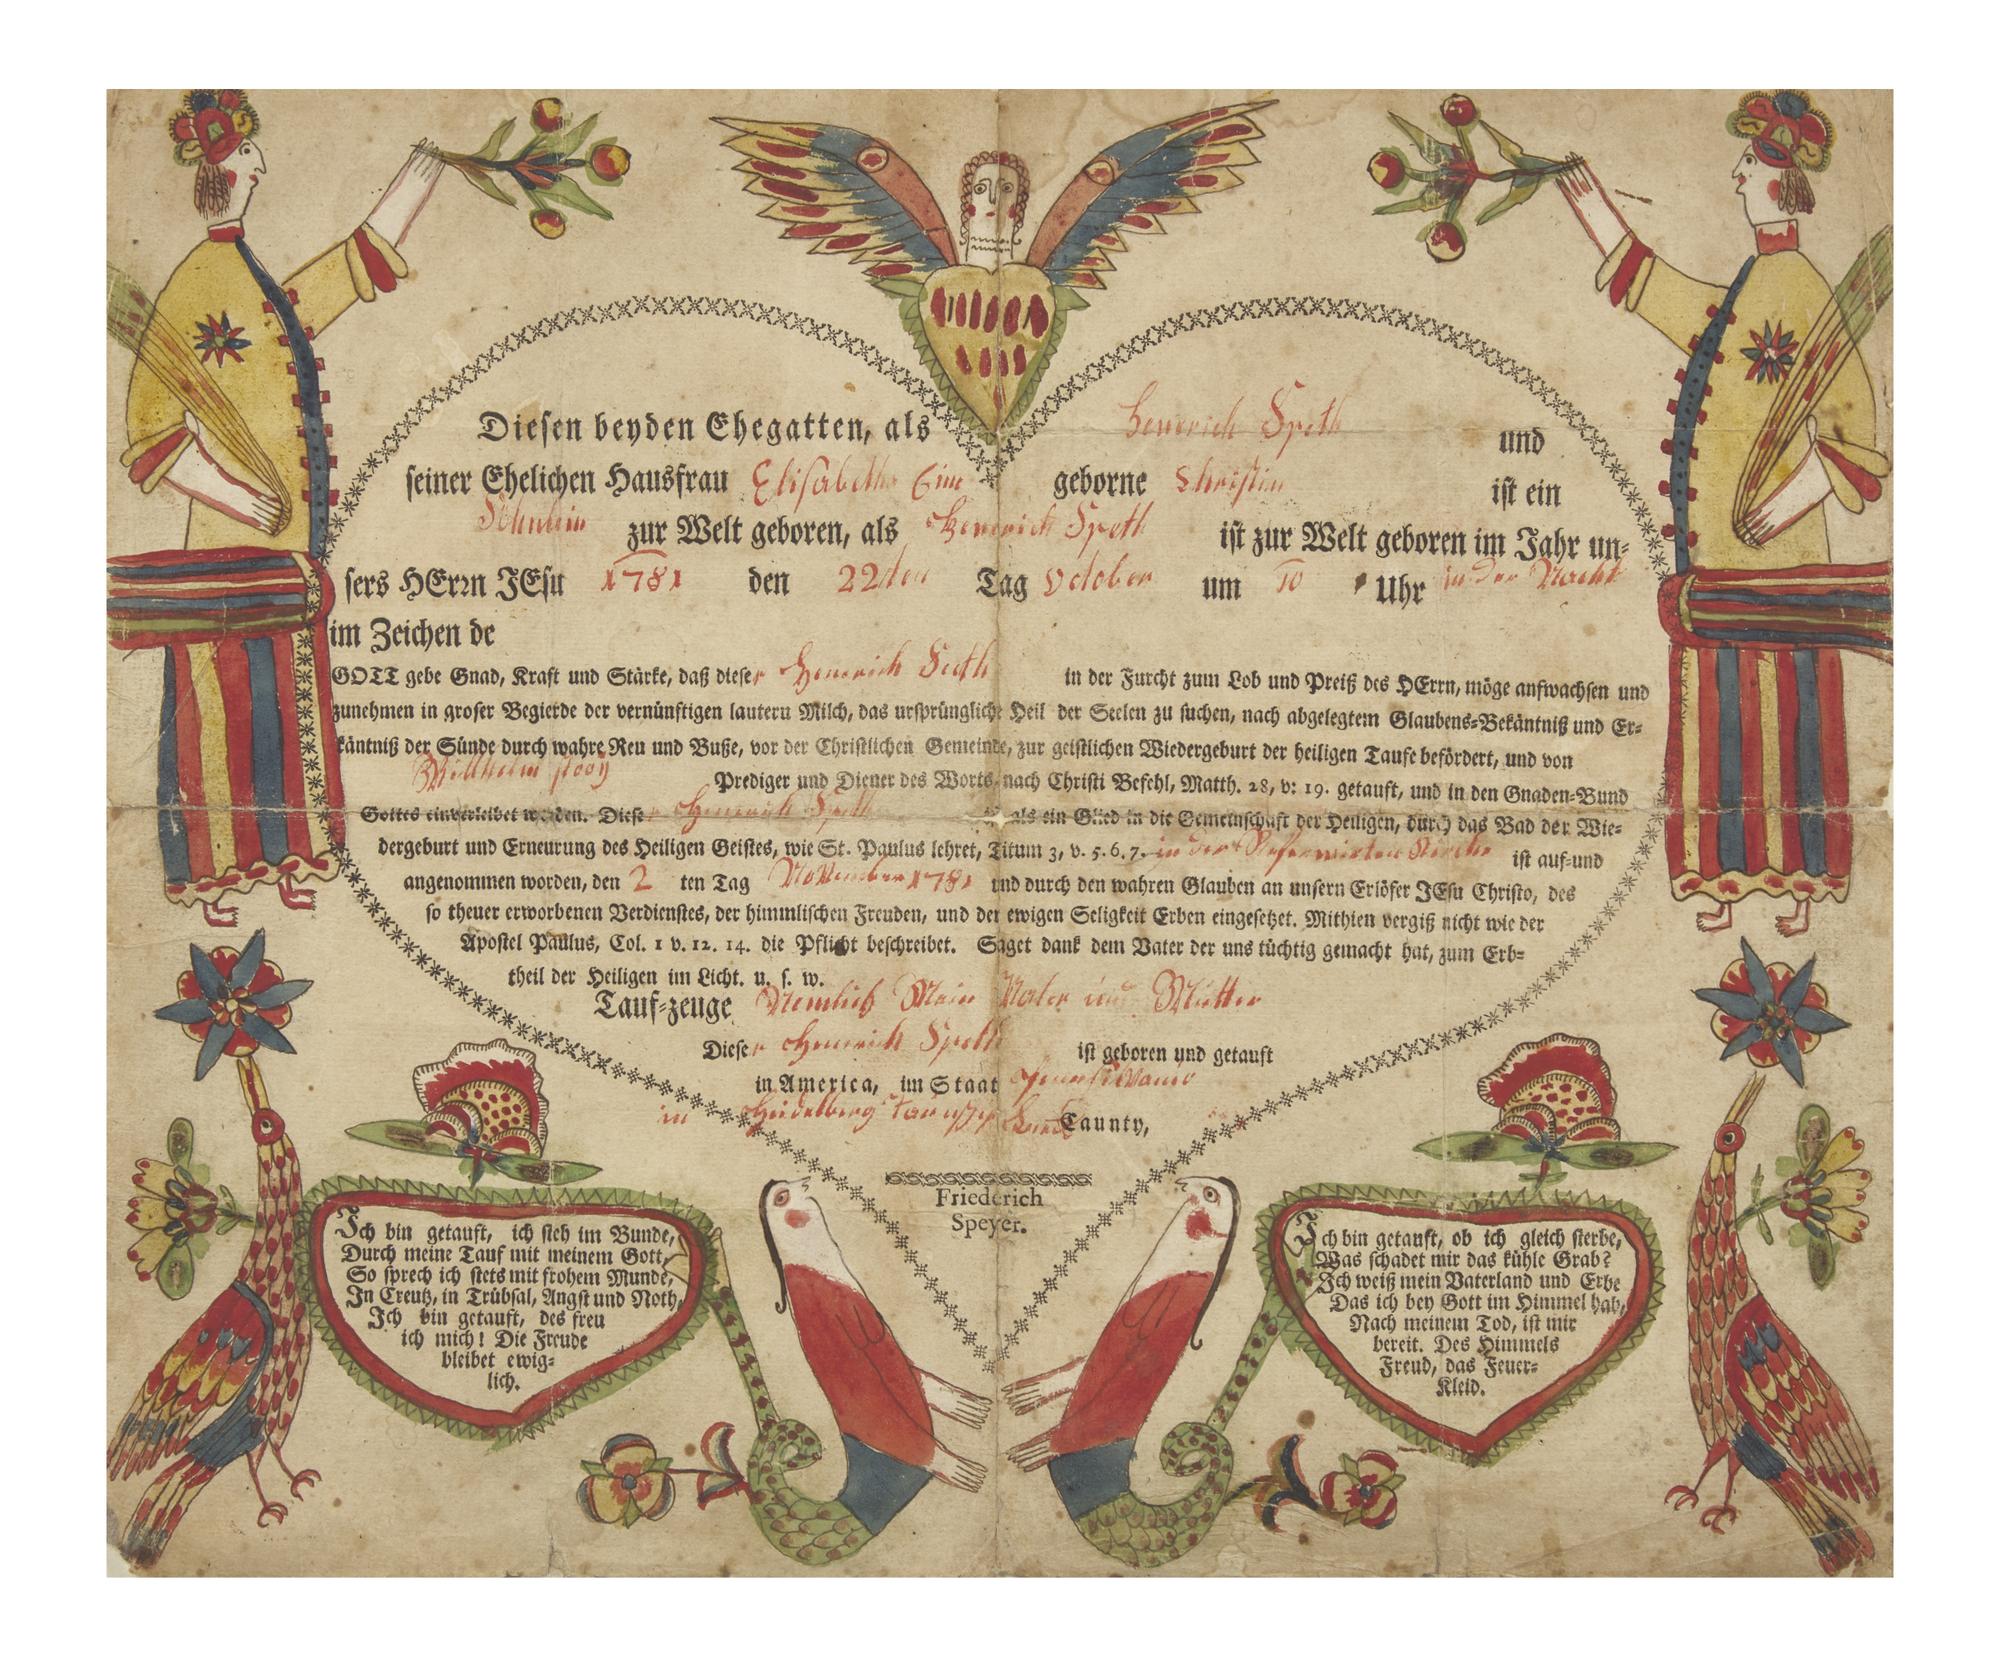 Diesen beyden Ehegatten, als Henrich Speth und
seiner Ehelichen Hausfrau Elisabeth Eine geborne Christin ist ein
Söhnlein zur Welt geboren, als Henrich Speth ist zur Welt geboren im Jahr un-
sers HErrn JEsu 1781 den 22ten Tag October um 10 Uhr in der Nacht
im Zeichen de
GOTT gebe Gnad, Kraft und Stärke, daß dieser Henrich Speth in der Furcht zum Lob und Preiß des HErrn, möge anfwachsen und
zunehmen in groser Begierde der vernünftigen lautern Milch, das ursprüngliche Heil der Seelen zu suchen, nach abgelegtem Glaubens-Bekäntniß und Er-
käntniß der Sünde durch wahre Reu und Buße, vor der Christlichen Gemeinde, zur geistlichen Wiedergeburt der heiligen Taufe befördert, und von
Willhelm Prediger und Diener des Worts, nach Christi Befehl, Matth. 28, v: 19. getauft, und in den Gnaden-Bund
Gottes einverleibet worden. Dieser Henrich Speth als ein Glied in die Gemeinschaft der Heiligen, durch das Bad der Wie-
dergeburt und Erneurung des Heiligen Geistes, wie St. Paulus lehret, Titum 3, v. 5. 6. 7. in der Reformirten Kirche ist auf-und
angenommen worden, den 2 ten Tag November 1781 und durch den wahren Glauben an unsern Erlöfer JEsu Christo, des
so theuer erworbenen Verdienstes, der himmlischen Freuden, und der ewigen Seligkeit Erben eingesetzet. Mithien vergiß nicht wie der
Apostel Paulus, Col. 1 v. 12. 14. die Pflicht beschreibet. Saget dank dem Vater der uns tüchtig gemacht hat, zum Erb-
theil der Heiligen im Licht. u. s. w.
Tauf-zeuge Nemlich Mein Vater und Mutter
Dieser Henrich Speth ist geboren und getauft
in America, im Staat
in Heidelberg Caunty,
Friederich
Speyer.
Ich bin getauft, ich steh im Bunde,
Durch meine Tauf mit meinem Gott,
So sprech ich stets mit frohem Munde,
In Creutz, in Trübsal, Angst und Noth,
Ich bin getauft, des freu
ich mich! Die Freude
bleibet ewig-
lich.
Ich bin getauft, ob ich gleich sterbe,
Was schadet mir das kühle Grab?
Ich weiß mein Vaterland und Erbe
Das ich bey Gott im Himmel hab,
Nach meinem Tod, ist mir
bereit. Des Himmels
Freud, das Feuer-
Kleid.